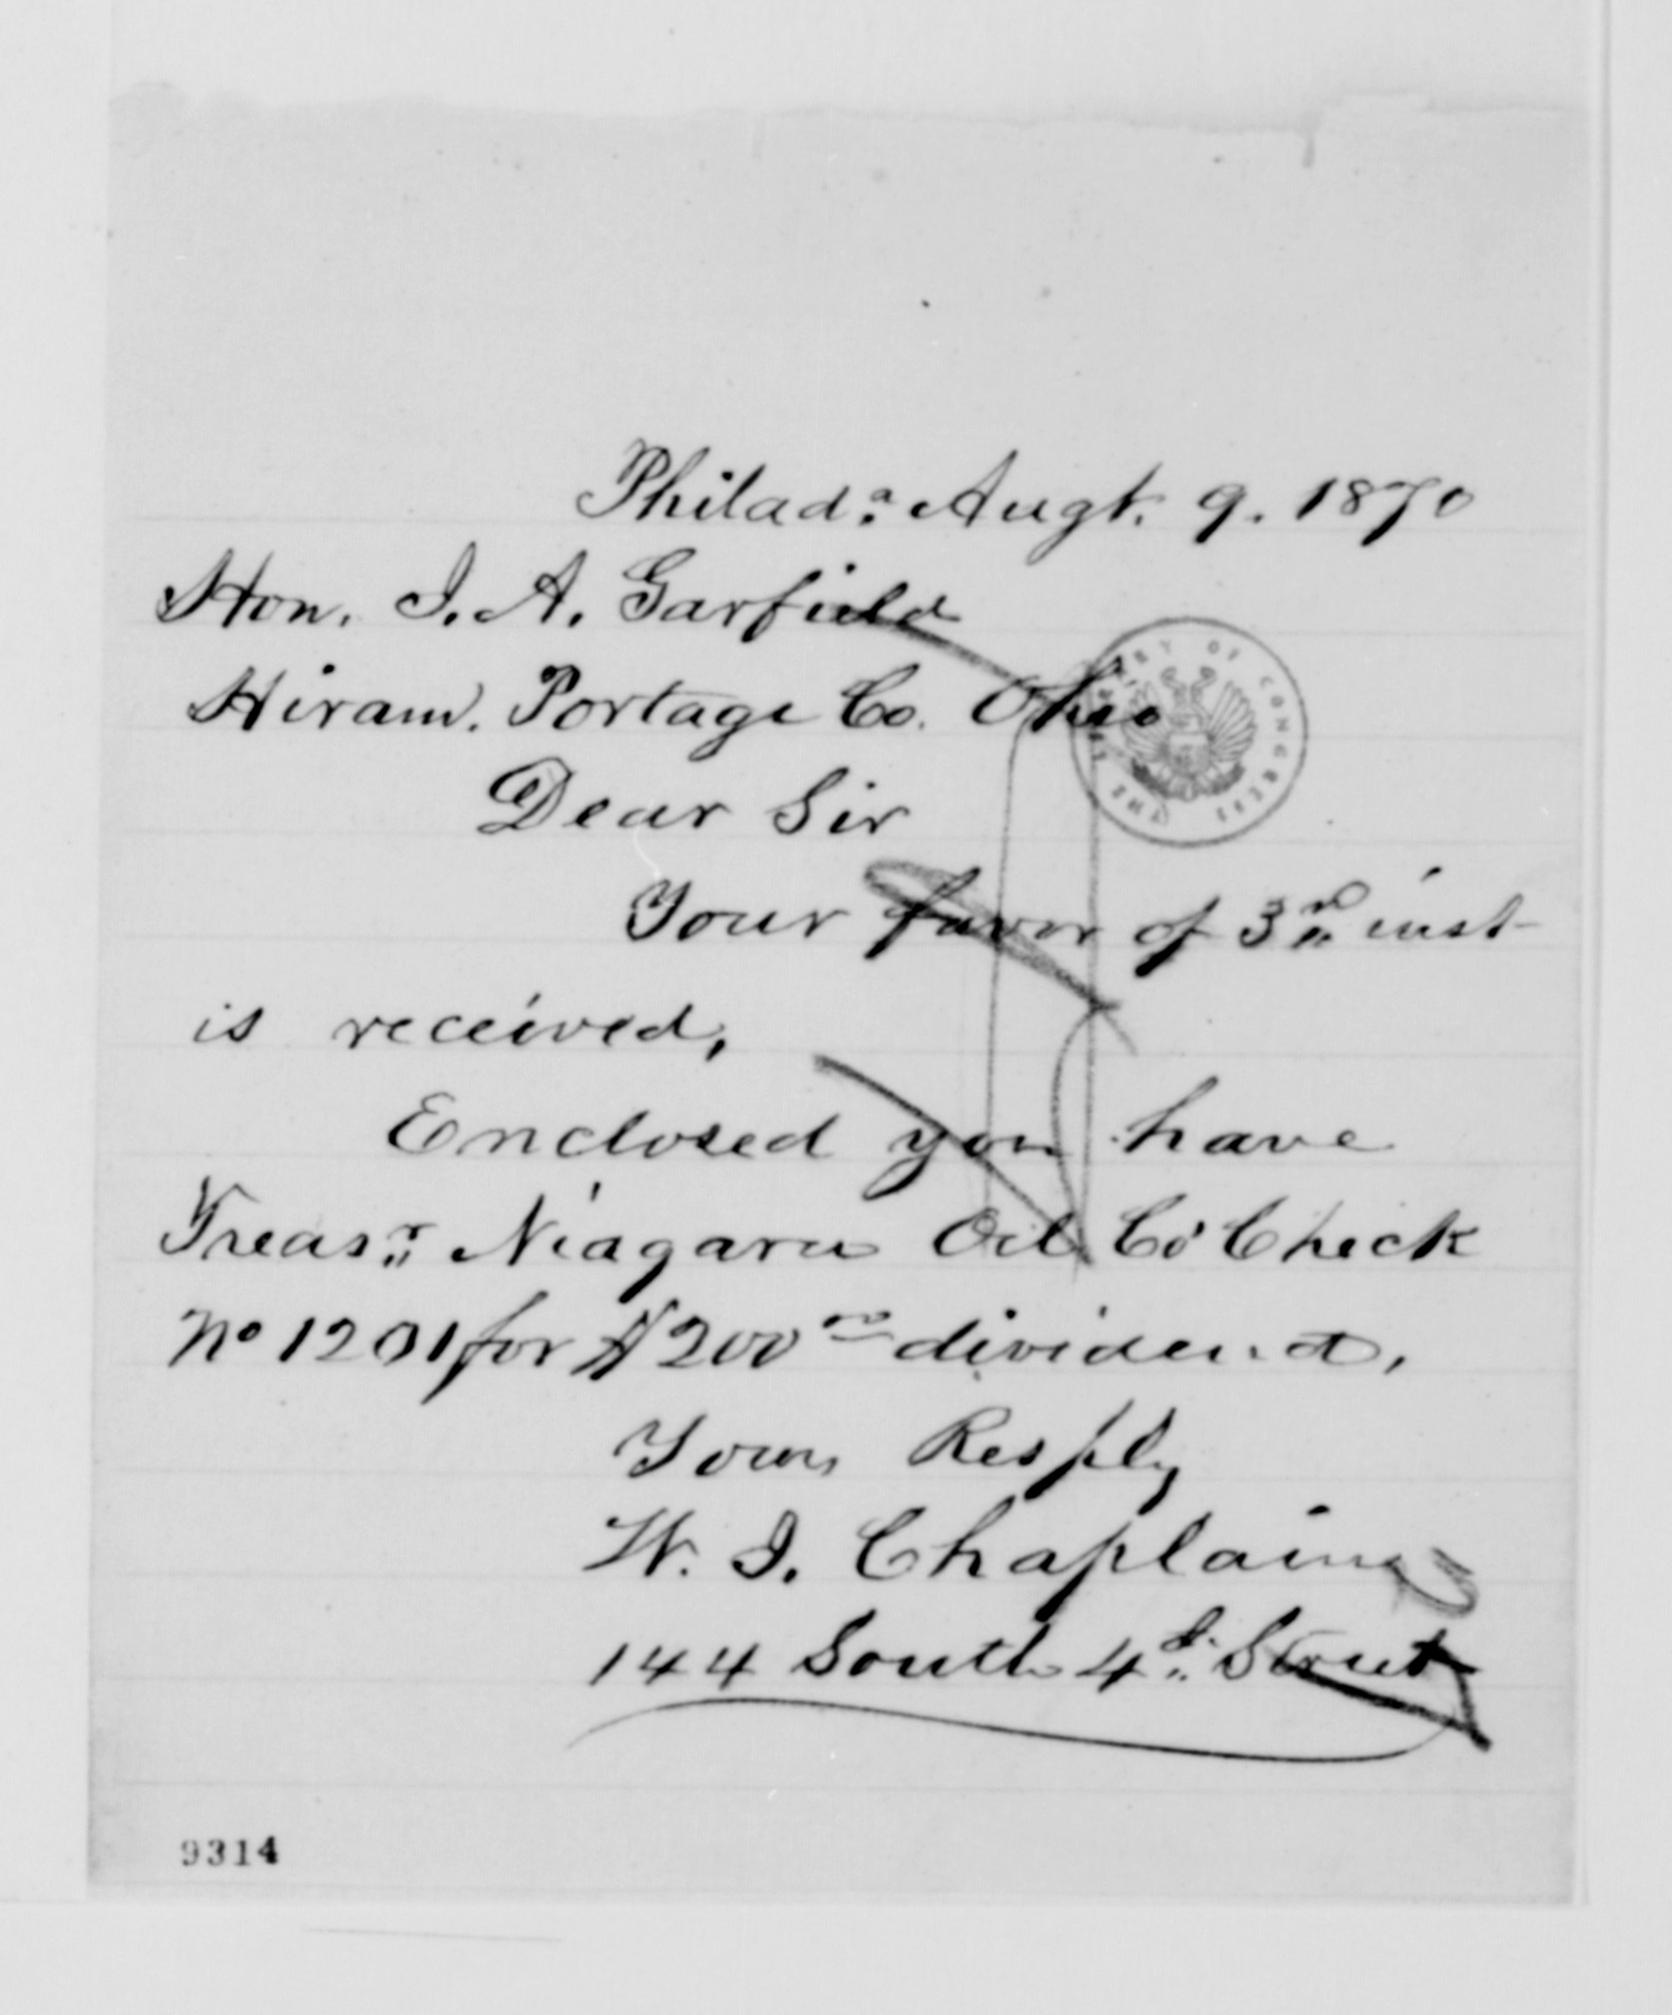 Philada. Augt. 9. 1870
Hon. J. A. Garfield
Hiram. Portage Co. Ohio
THE LIBRARY OF CONGRESS
Dear Sir
Your favor of 3rd inst
is received,
Enclosed you have
Treasr. Niagara Oil Co Check
No 1201 for $200 00 dividend,
Yours Resply
W. J. Chaplain
144 South 4th. Street
9314